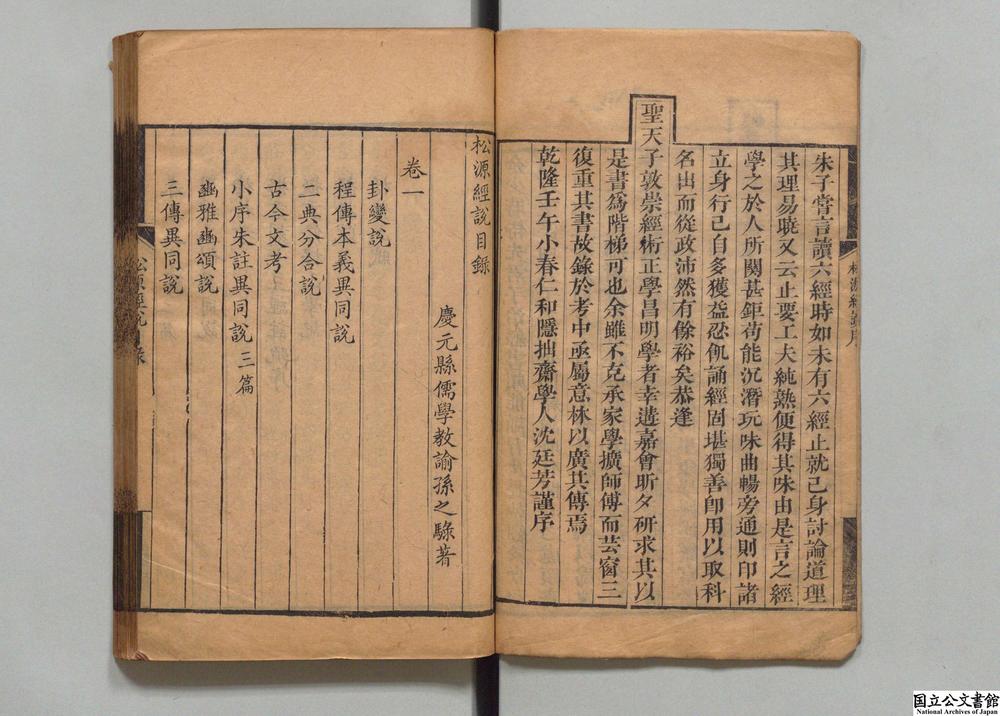 朱子嘗言讀六經時如未有六經止就己身討論道理
其理易曉又云止要工夫純熟便得其味由是言之經
學之於人所關甚鉅苟能沉潛玩味曲暢旁通則印諸
立身行己自多獲益忍飢誦經固堪獨善卽用以取科
名出而從政沛然有餘裕矣恭逢
聖天子敦崇經術正學昌明學者幸遘嘉會昕夕研求其以
是書爲階梯可也余雖不克承家學擴師傅而芸窗三
復重其書故錄於考中亟屬意林以廣其傳焉
乾隆壬午小春仁和隱拙齋學人沈廷芳謹序
松源經說序
松源經說目錄
慶元縣儒學教諭孫之騄著
卷一
卦變說
程傳本義異同說
二典分合說
古今文考
小序朱註異同說 三篇
豳雅豳頌說
三傳異同說
松源經說目錄
国立公文書館
National Archives of Japan